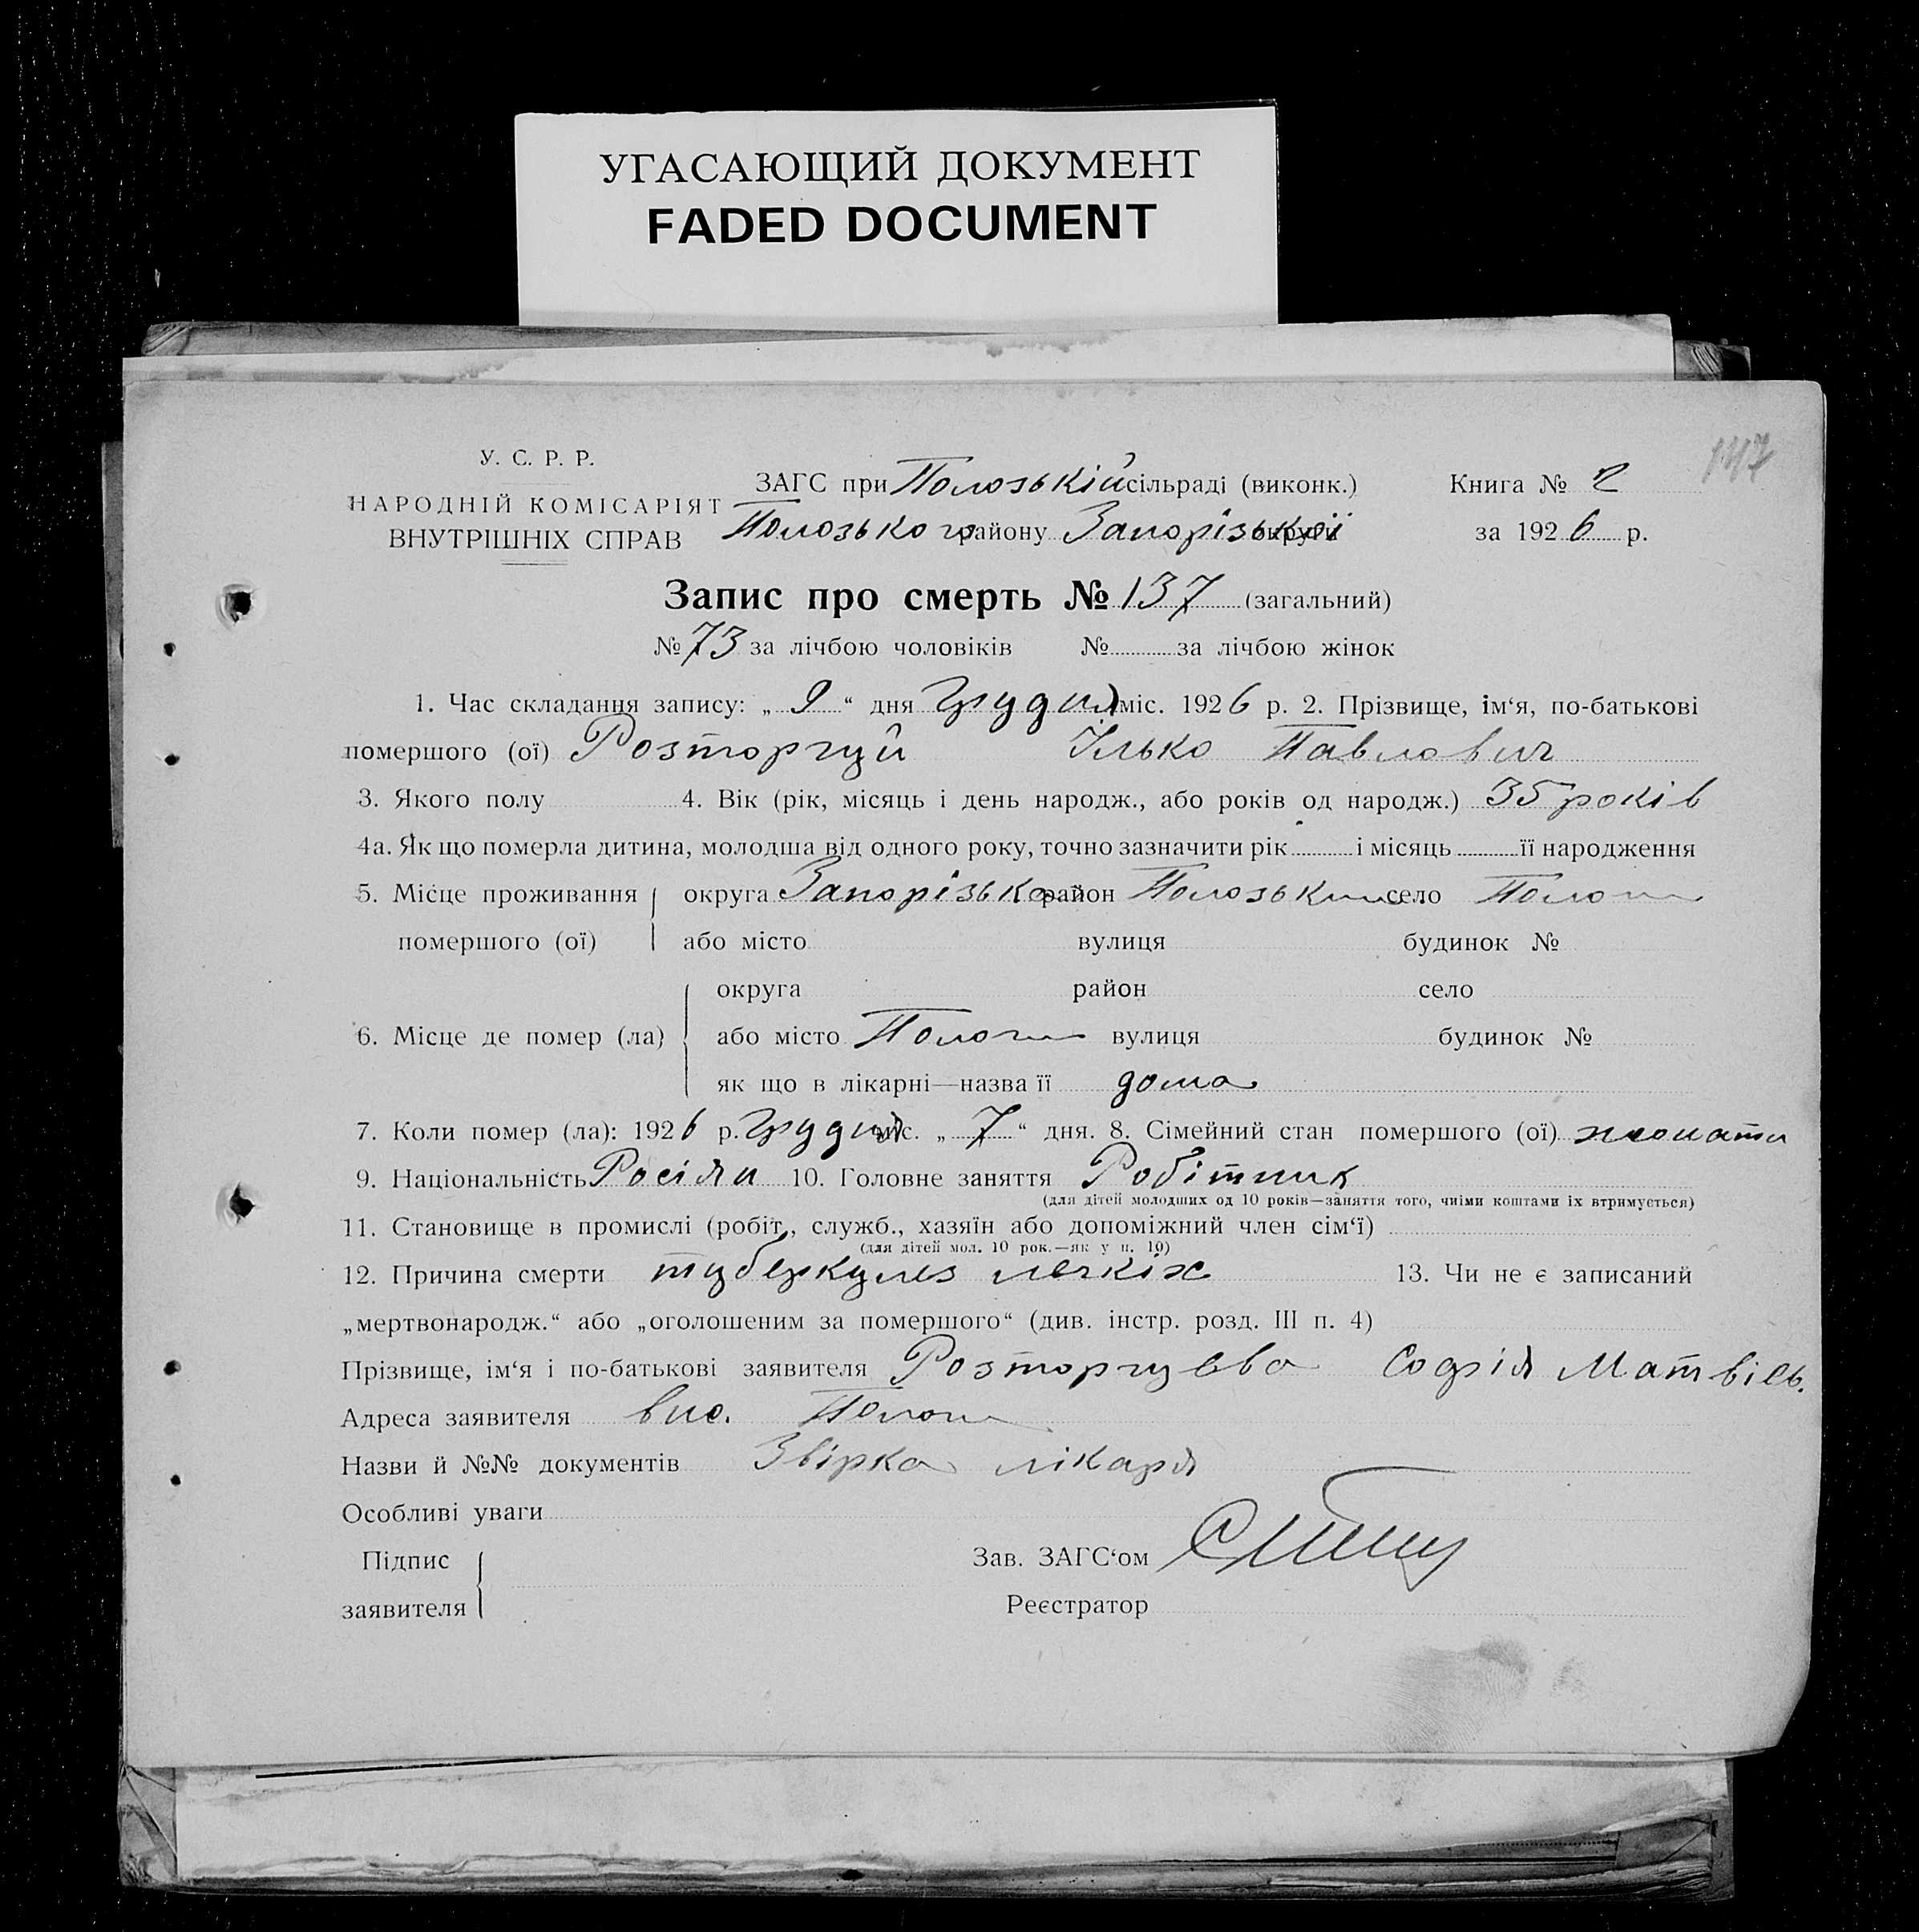 УГАСАЮЩИЙ ДОКУМЕНТ
FADED DOCUMENT
147
У. С. Р. Р.
НАРОДНІЙ КОМІСАРІЯТ
ВНУТРІШНІХ СПРАВ
ЗАГС при Пологській сільраді (виконк.) Книга № 2
Пологського району Запорізької округи за 1926 р.
Запис про смерть № 137 (загальний)
№ 73 за лічбою чоловіків № за лічбою жінок
1. Час складання запису: „ 9 “ дня Грудня міс. 1926 р. 2. Прізвище, ім‘я, по-батькові
помершого (ої) Розторгуй Ілько Павлович
3. Якого полу 4. Вік (рік, місяць і день народж., або років од народж.) 35 років
4а. Як що померла дитина, молодша від одного року, точно зазначити рік і місяць її народження
5. Місце проживання помершого (ої) округа Запорізька район Пологський село Пологи
або місто вулиця будинок №
округа район село
6. Місце де помер (ла) або місто Пологи вулиця будинок №
як що в лікарні—назва її дома
7. Коли помер (ла): 1926 р. Грудня міс. „ 7 “ дня. 8. Сімейний стан помершого (ої) жонати
9. Національність Росіян 10. Головне заняття Робітник
(для дітей молодших од 10 років—заняття того, чиїми коштами їх втримується)
11. Становище в промислі (робіт., служб., хазяїн або допоміжний член сім‘ї)
(для дітей мол. 10 рок.—як у п. 10)
12. Причина смерти туберкулез легкіх 13. Чи не є записаний
„мертвонародж.“ або „оголошеним за помершого“ (див. інстр. розд. III п. 4)
Прізвище, ім‘я і по-батькові заявителя Розторгуєва Софія Матвієв.
Адреса заявителя Пологи
Назви й №№ документів Звірка лікаря
Особливі уваги
Підпис заявителя
Зав. ЗАГС‘ом
Реєстратор